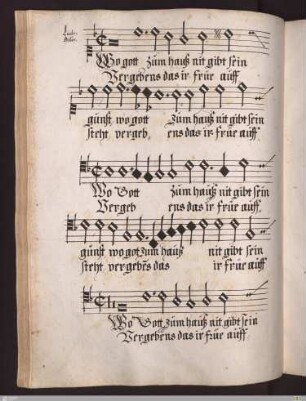 Wo gott zum hauß nit gibt sein
Vergebens das ir frúe auff
gúnst wo gott zum hauß nit gibt sein
steht vergeb, ens das ir frúe auff
Wo Gott zum hauß nit gibt sein
Vergeb ens das ir frúe auff,
gúnst wo got zum hauß nit gibt sein
steht vergebēs das ir frúe auff
Wo Gott zum hauß nit gibt sein
Vergebens das ir frúe auff.